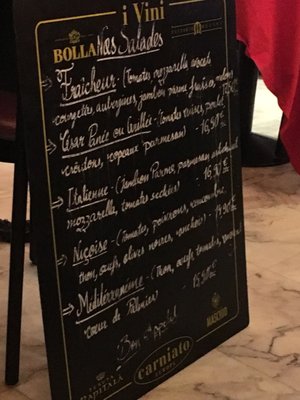 i Vini
BOLLA
Nos Salades
Fraîcheur: (Tomates, mozzarella, avocat
courgettes, aubergines, jambon parme, melon,
César Panée ou Grillée: tomates cerises, poulet
croûtons, copeaux parmesan) 16,90€
Italienne: (Jambon Parme, parmesan
mozzarella, tomates sechées) 16,90€
Niçoise: (tomates, poivrons, concombre,
thon, oeufs, olives noires, anchois)
Méditerranéenne: (thon, oeufs, tomates,
coeur de Palmier) 15,90€
Bon Appétit
MASCHIO
CAPITALA
carniato
EUROPE